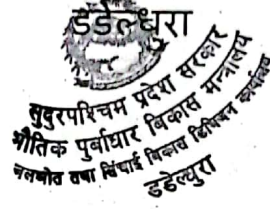 डडेल्धुरा
सुदुरपश्चिम प्रदेश सरकार
भौतिक पुर्बाधार बिकास मन्त्रालय
जलस्रोत तथा सिंचाई बिकास डिभिजन कार्यालय
डडेल्धुरा